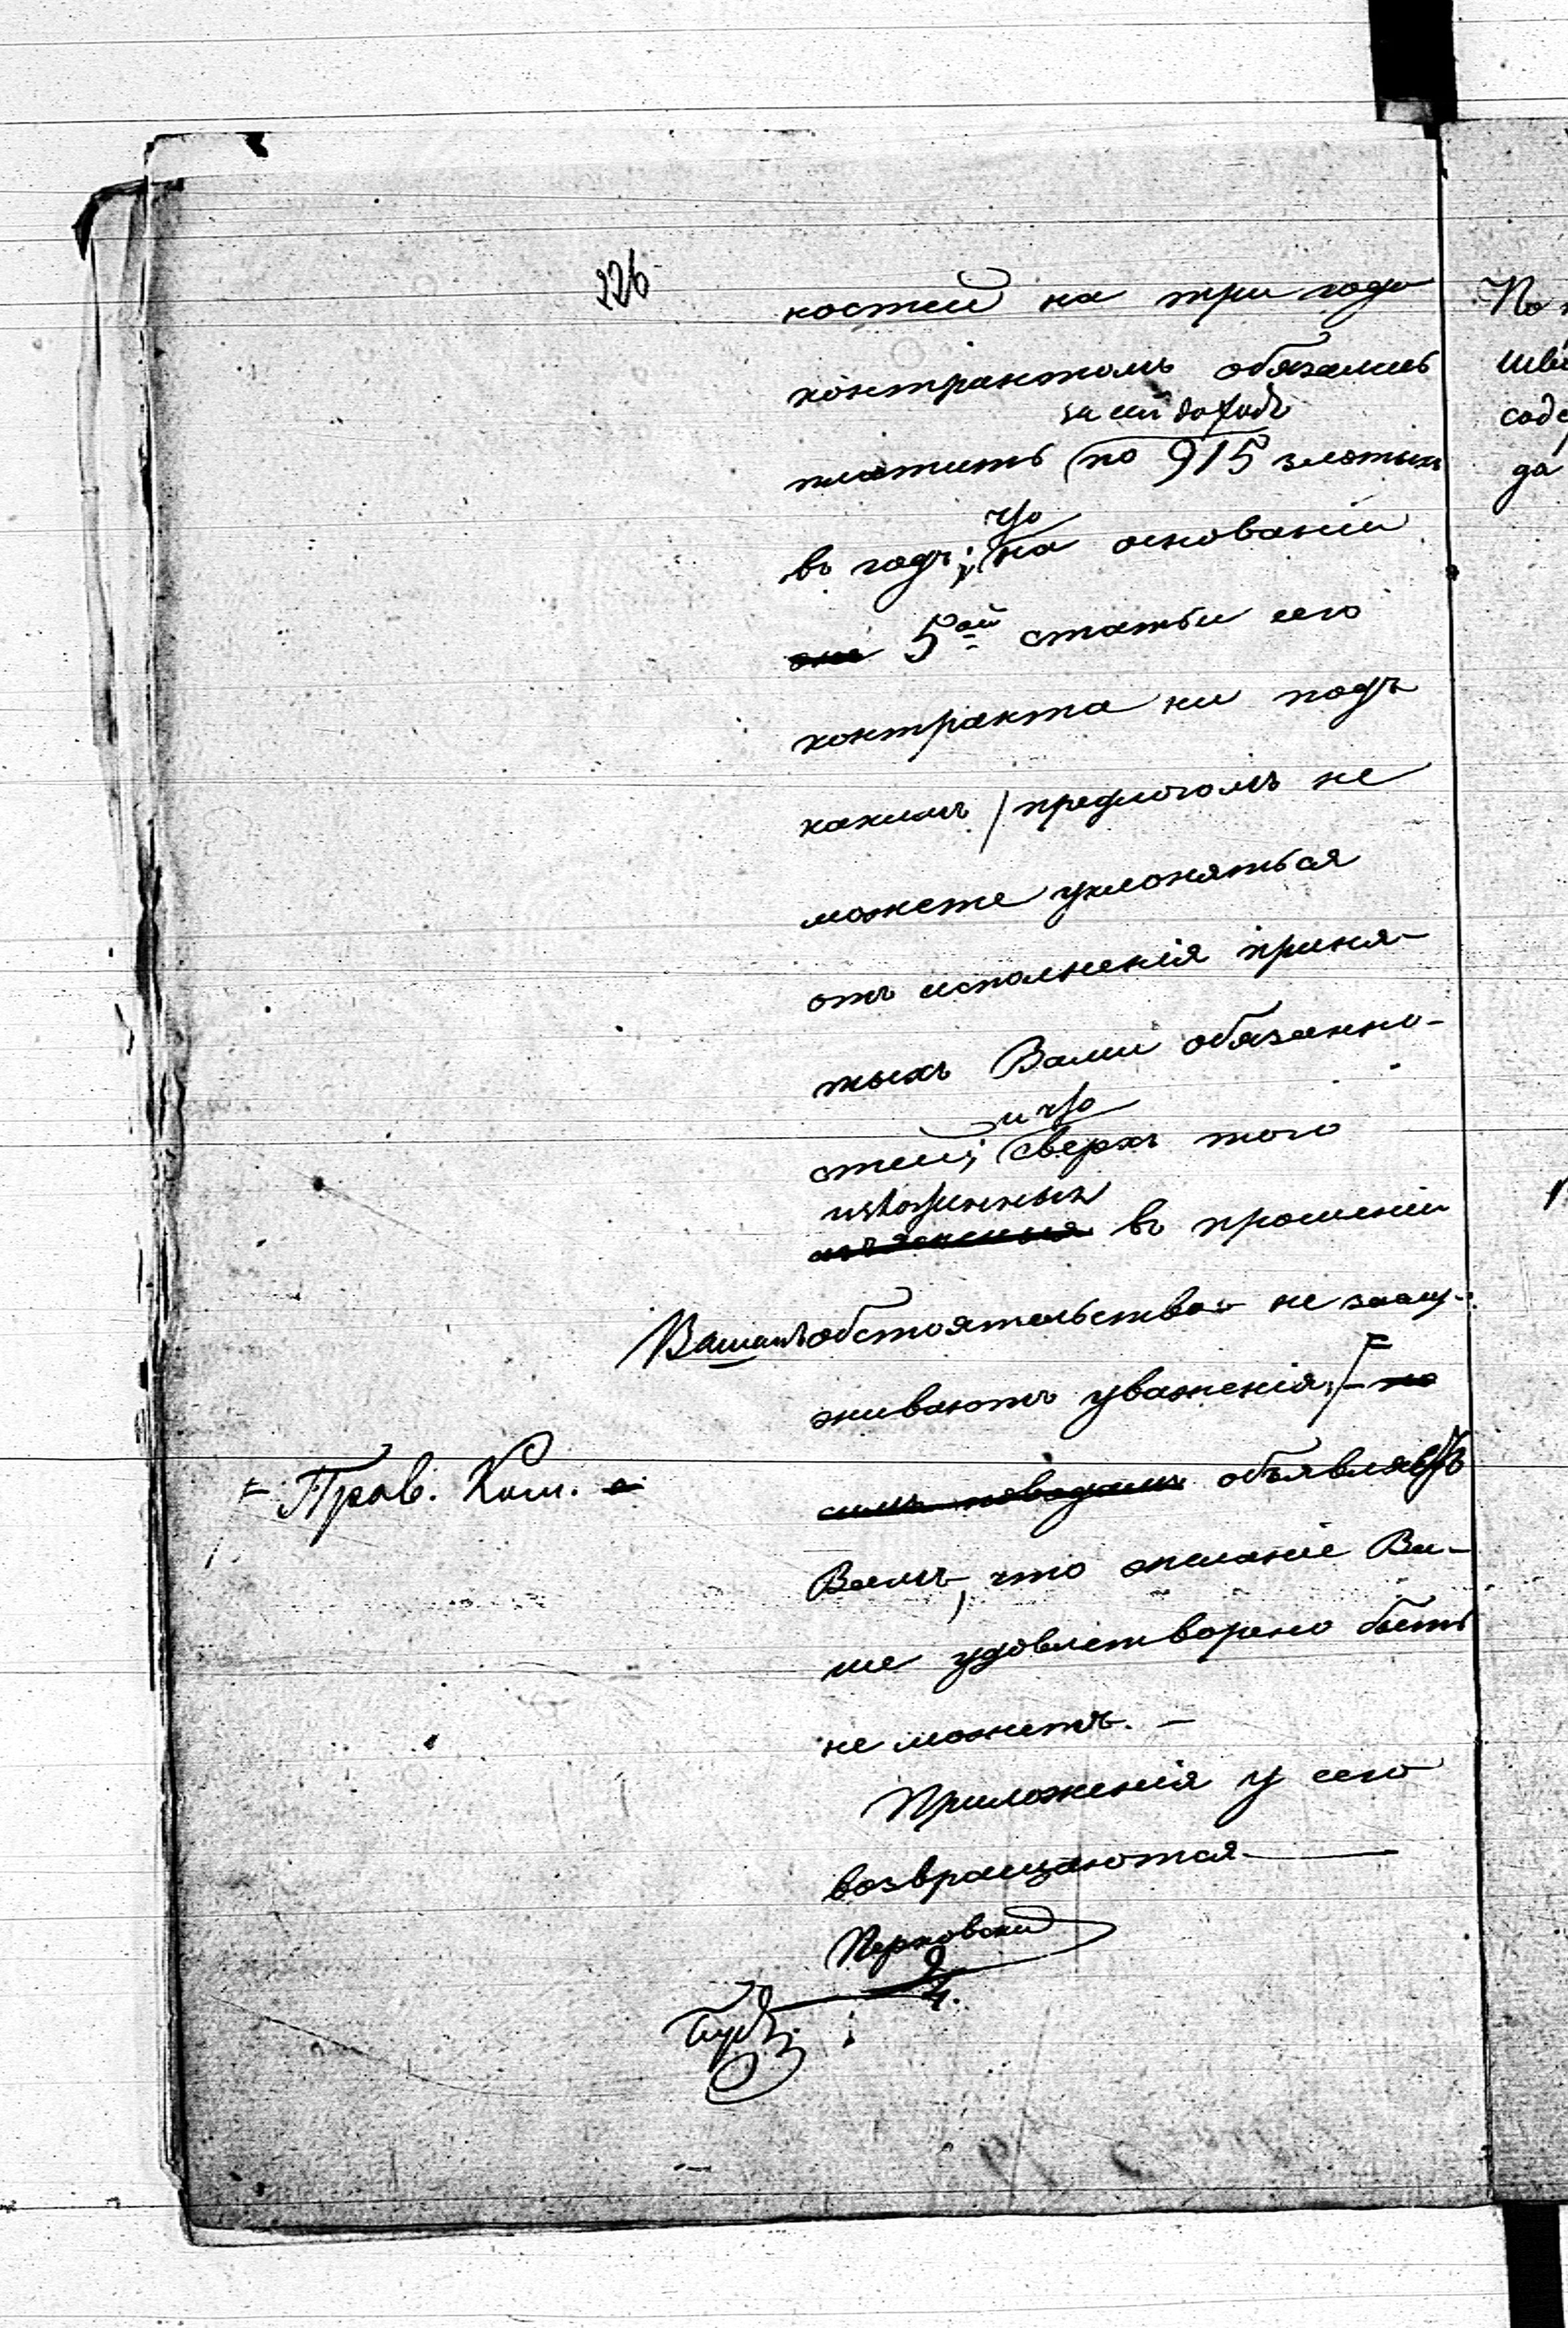 226
костей на три года
контрактомъ обязались
за сей доходъ
платить по 915 злотыхъ
въ годъ; что на основаніи
5ой статьи сего
контракта ни подъ
какимъ предлогомъ не
можете уклоняться
отъ исполненія приня-
тыхъ Вами обязанно-
стей; и что сверхъ того
изложенныя
въ прошеніи
Вашемъ обстоятельства не заслу-
живаютъ уваженія, –
Прав. Ком.
объявляетъ
Вамъ, что желаніе Ва-
ше удовлетворено быть
не можетъ. –
Приложенія у сего
возвращаются
2
4.
По
да